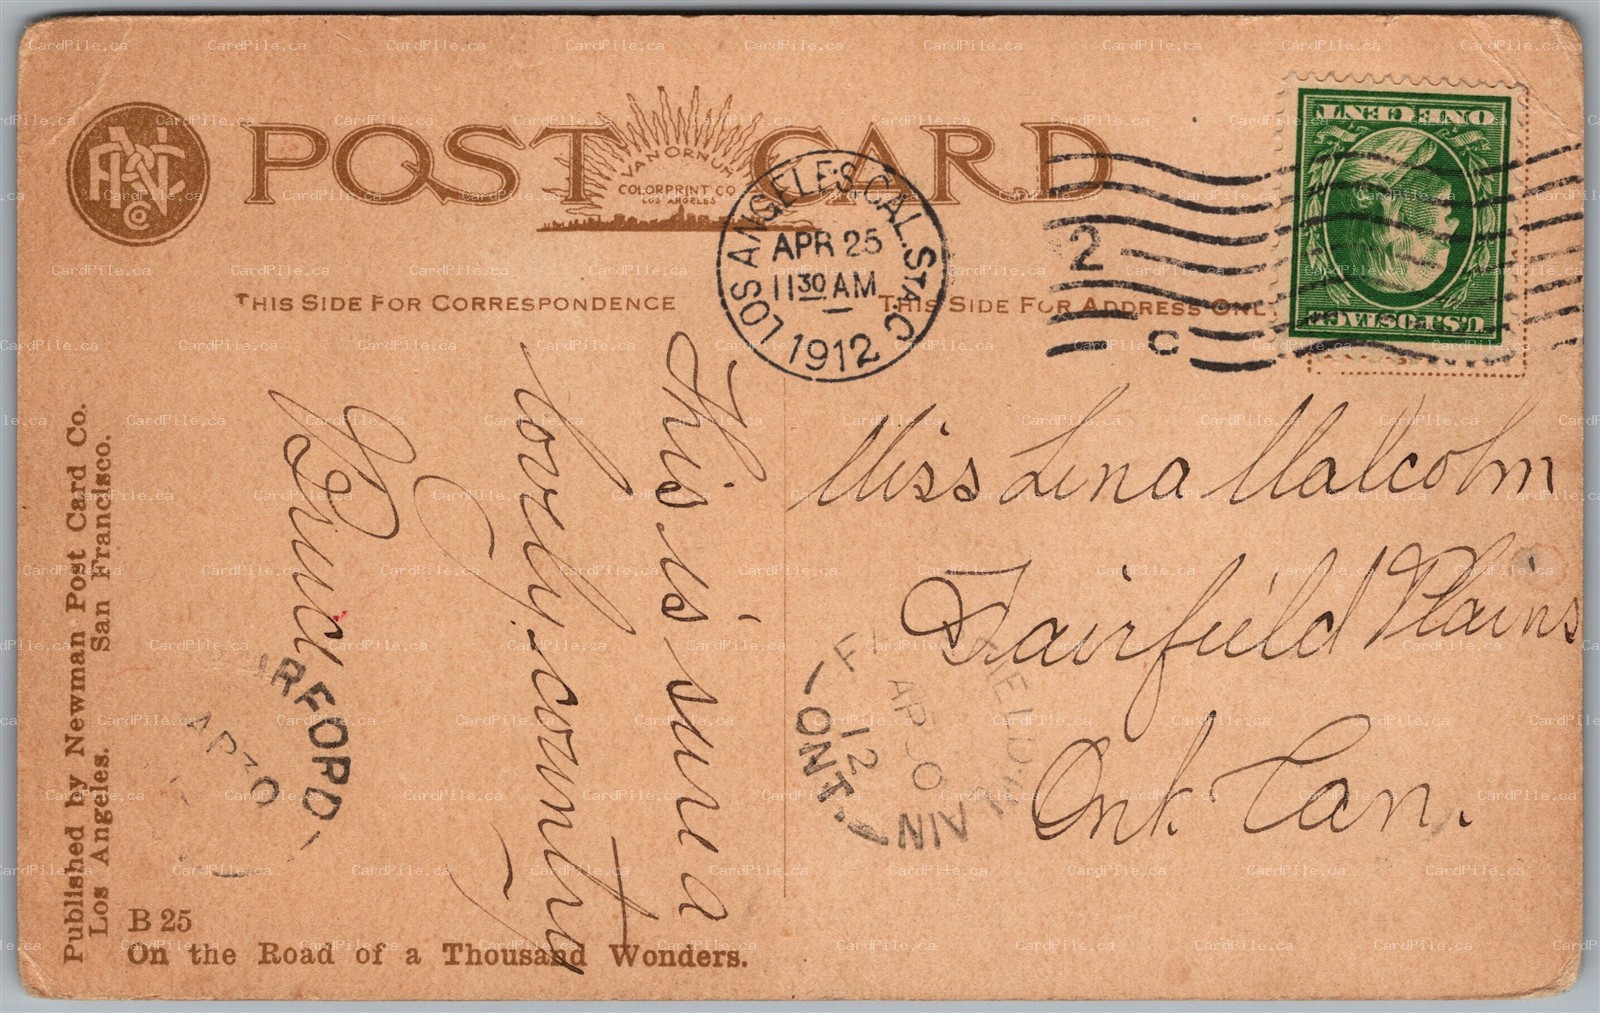 POST CARD
VAN ORNUM
COLORPRINT CO
LOS ANGELES
THIS SIDE FOR CORRESPONDENCE
THIS SIDE FOR ADDRESS ONL
LOS ANGELES, CAL. STA. C
APR 25
11 30 AM
1912
2
C
ONE CENT
U.S. POSTAGE
This is sure a
lovely country
Miss Lena Malcolm
Fairfield Plains
Ont. Can.
RFORD
AP 30
AP 30
12
ONT.
Published by Newman Post Card Co.
Los Angeles. San Francisco.
B 25
On the Road of a Thousand Wonders.
CardPile.ca